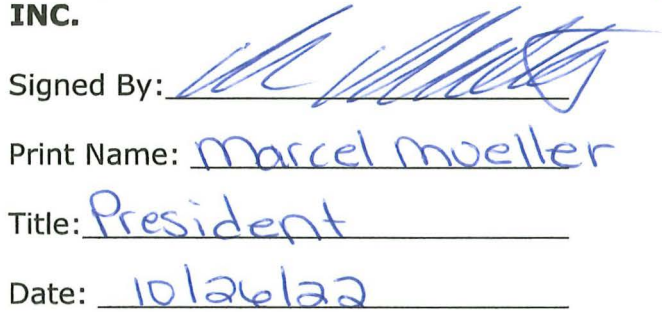 INC.
Signed By:
Print Name: Marcel Mueller
Title: President
Date: 10/26/22